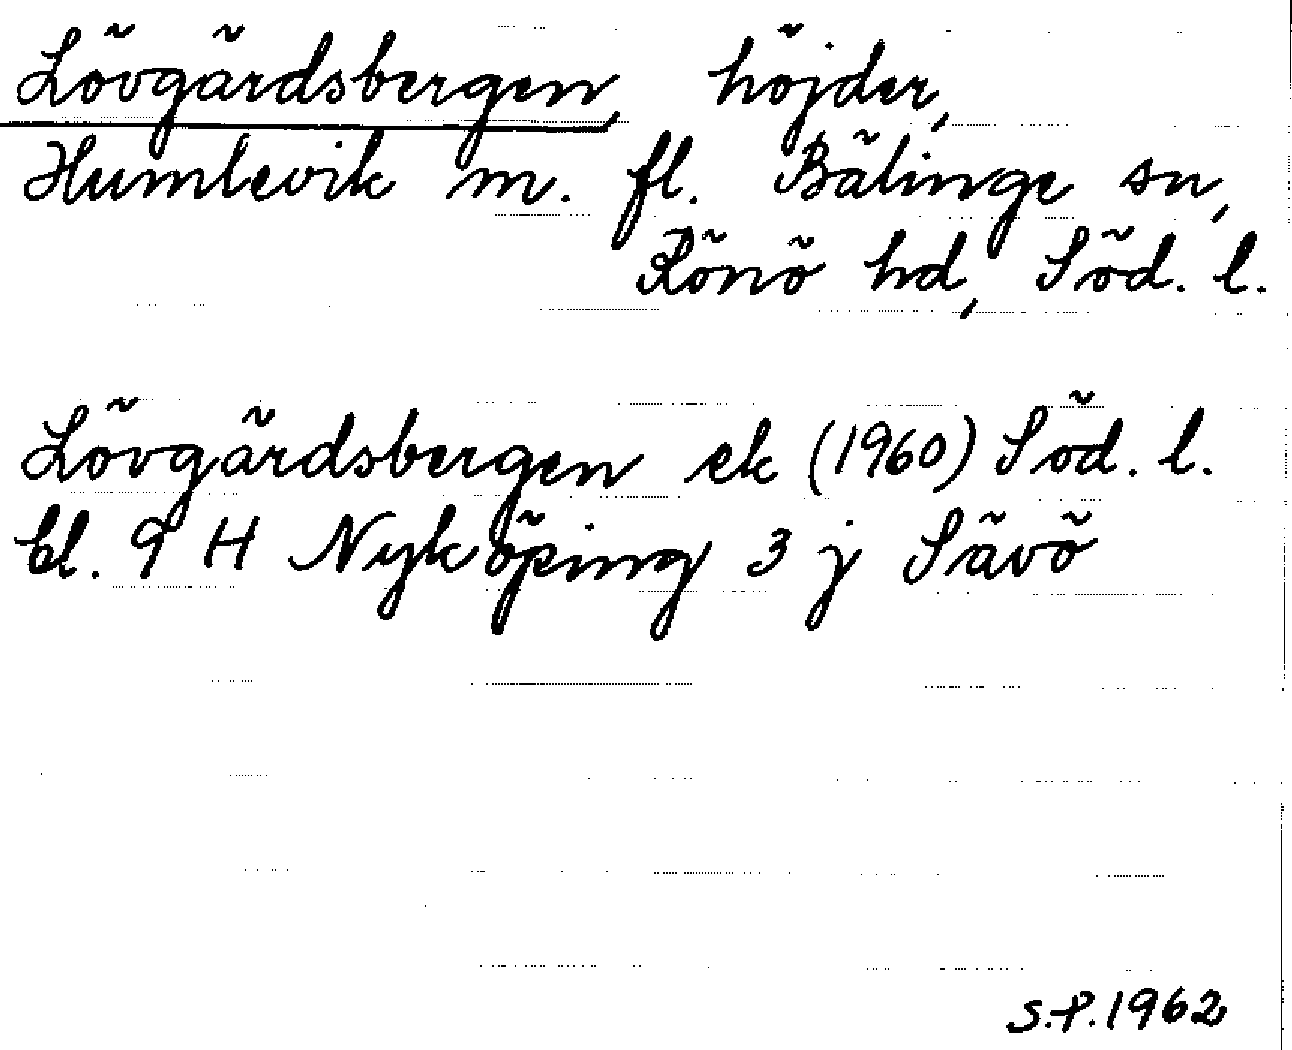 Lövgärdsbergen, höjder,
Humlevik m. fl. Bälinge sn,
Rönö hd, Söd. l.
Lövgärdsbergen ek (1960) Söd. l.
bl. 9 H Nyköping 3 j Sävö
S.P. 1962